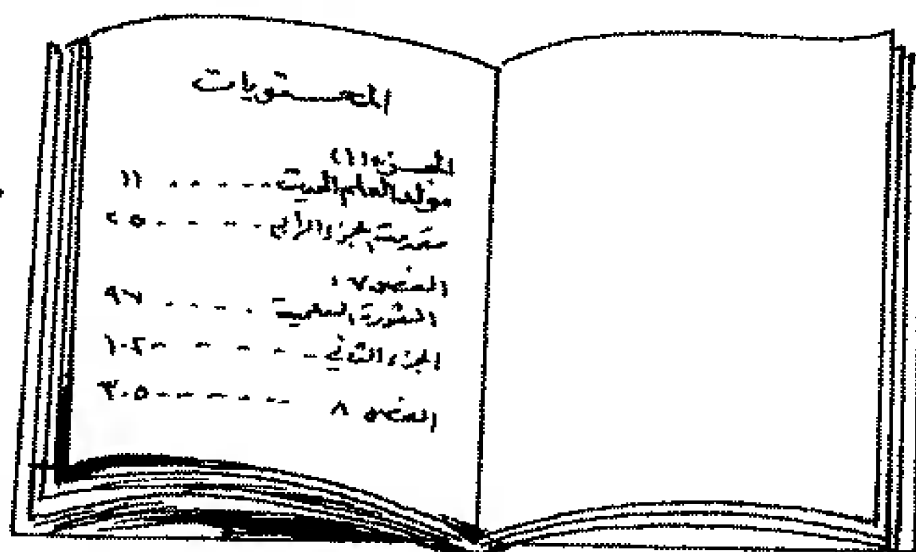 المحتويات
الجزء (١)
مولد العلم الحديث ١١
مقدمة الجزء ٢٥
الفصل ٧ :
الثورة العلمية ٩٧
الجزء الثاني ١٠٢
الفصل ٨ ٣٠٥